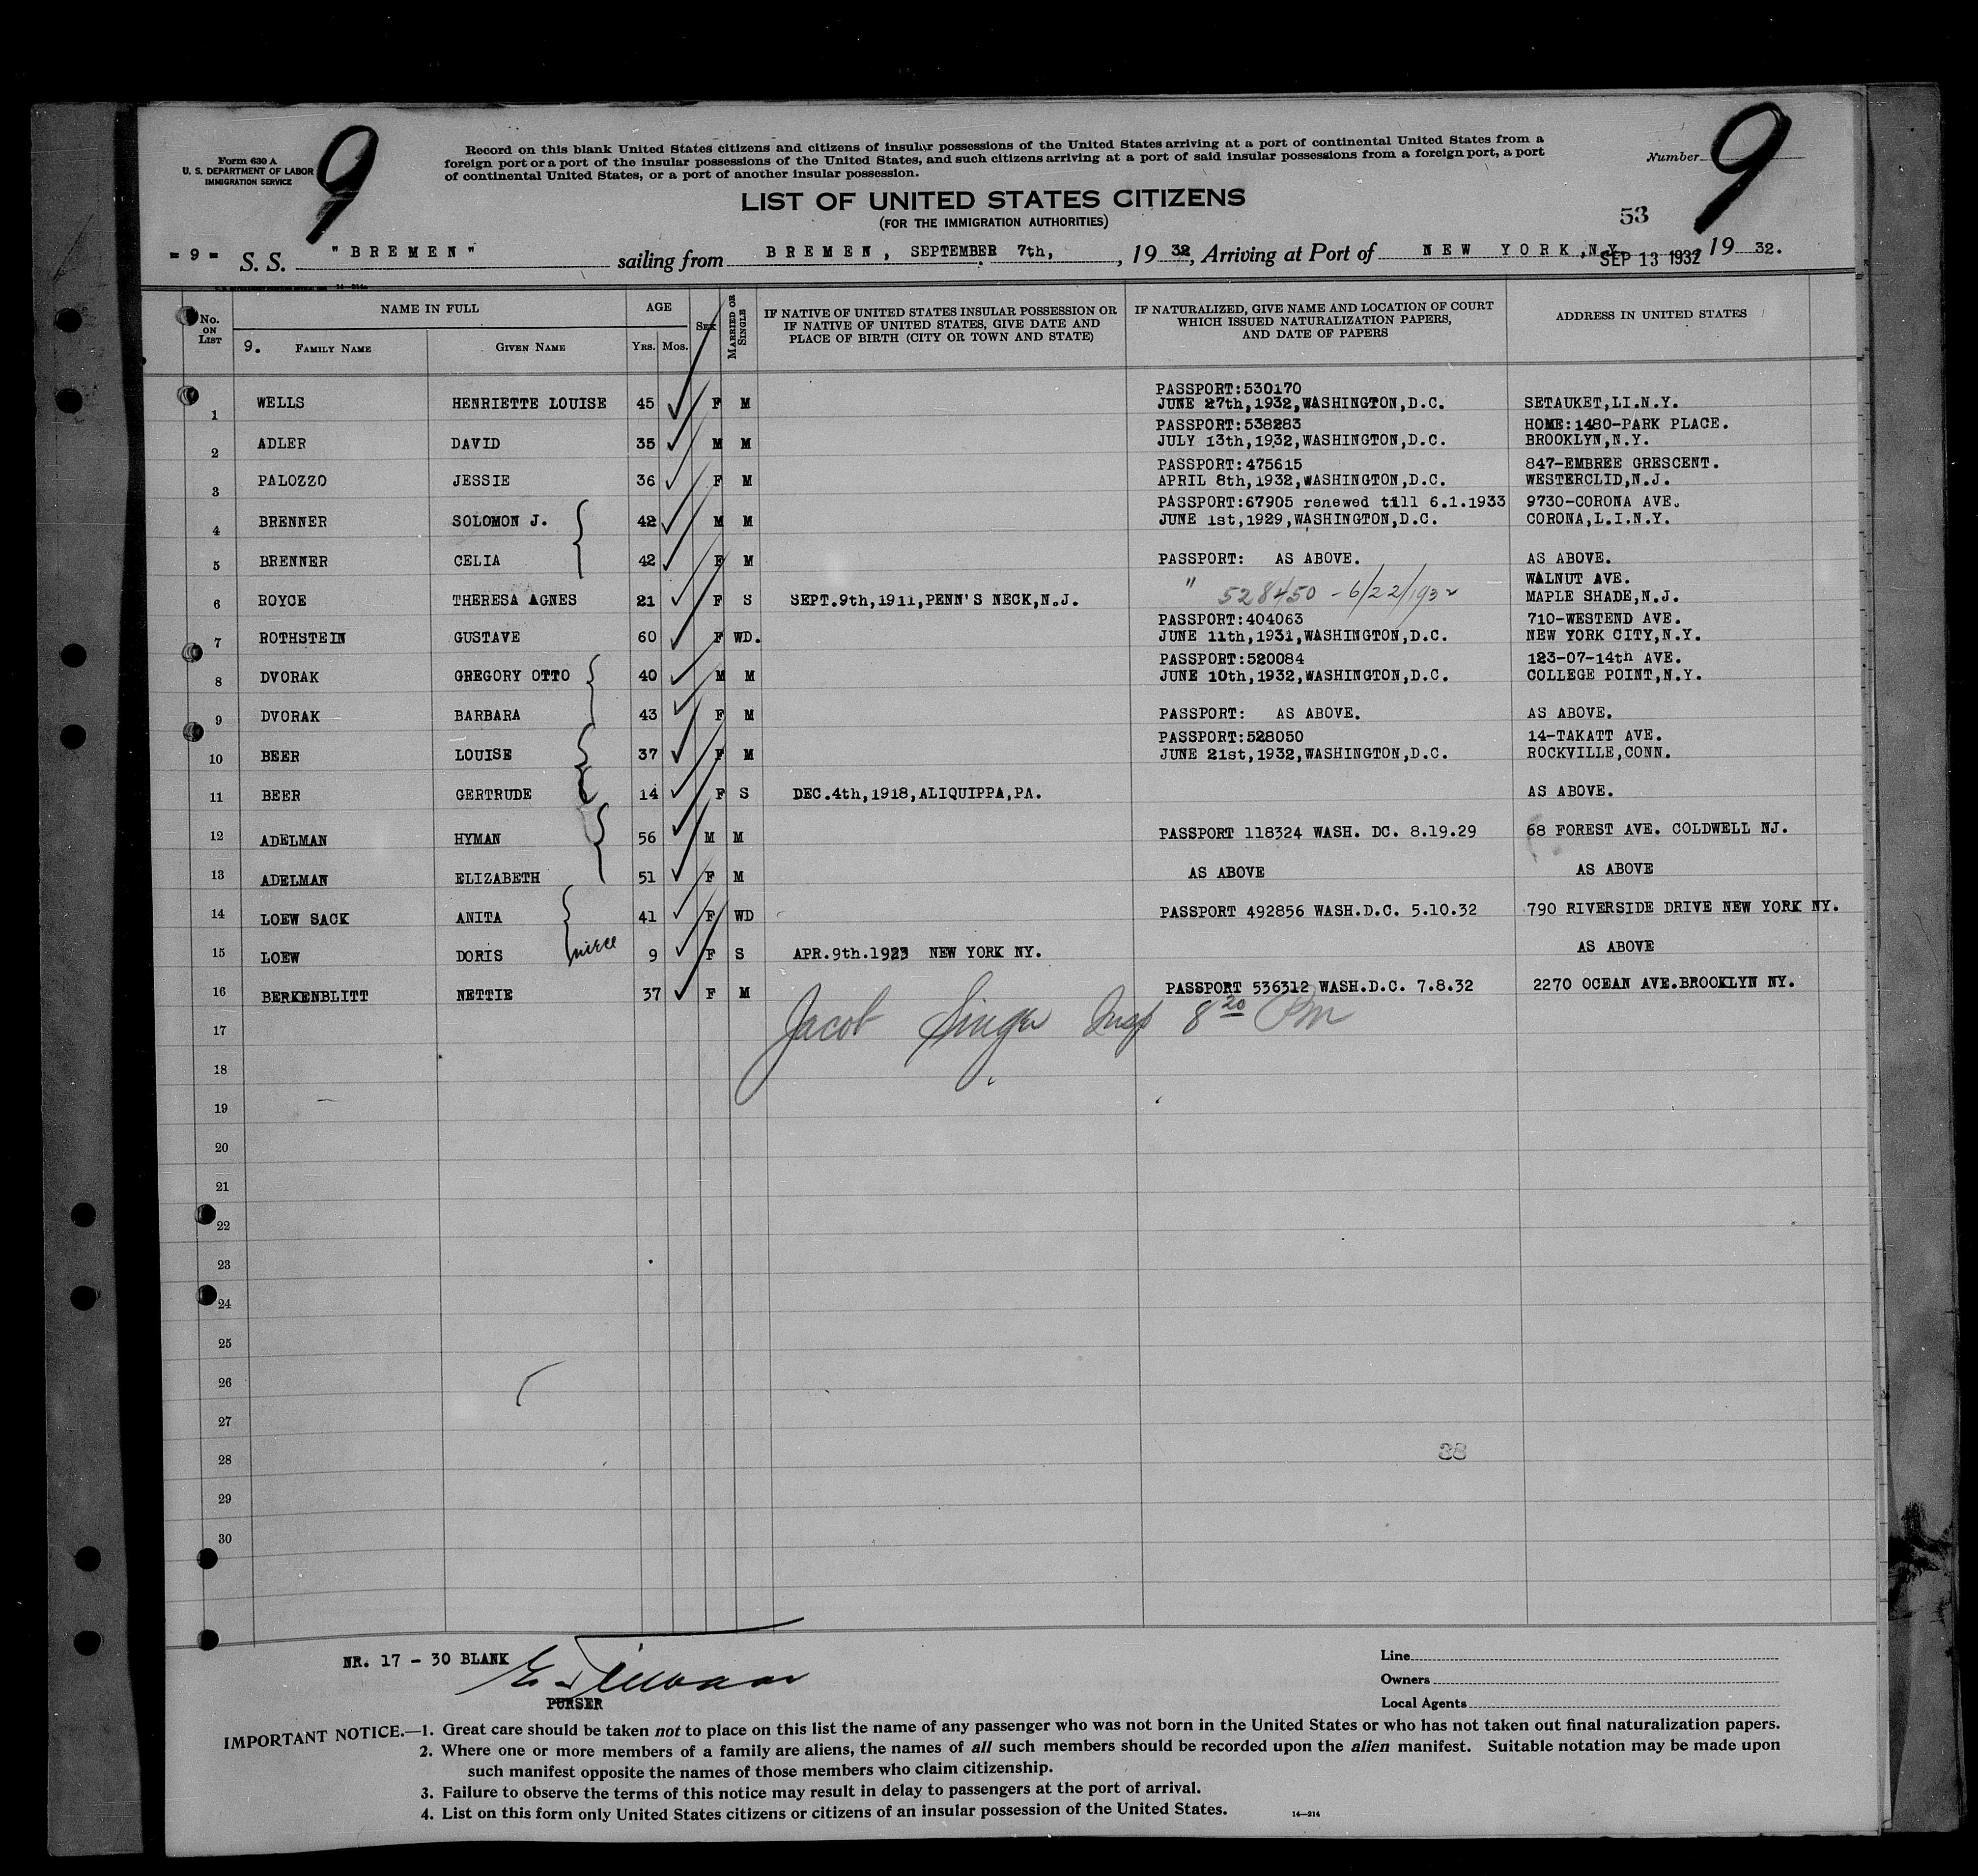 Form 630 A
U. S. DEPARTMENT OF LABOR
IMMIGRATION SERVICE
9
Record on this blank United States citizens and citizens of insular possessions of the United States arriving at a port of continental United States from a
foreign port or a port of the insular possessions of the United States, and such citizens arriving at a port of said insular possessions from a foreign port, a port
of continental United States, or a port of another insular possession.
Number 9
LIST OF UNITED STATES CITIZENS
(FOR THE IMMIGRATION AUTHORITIES)
53
= 9 = S. S. "BREMEN" sailing from BREMEN, SEPTEMBER 7th, , 19 32, Arriving at Port of NEW YORK, N.Y. SEP 13 1932 19 32.
No. ON LIST NAME IN FULL AGE SEX MARRIED OR SINGLE IF NATIVE OF UNITED STATES INSULAR POSSESSION OR IF NATIVE OF UNITED STATES, GIVE DATE AND PLACE OF BIRTH (CITY OR TOWN AND STATE) IF NATURALIZED, GIVE NAME AND LOCATION OF COURT WHICH ISSUED NATURALIZATION PAPERS, AND DATE OF PAPERS ADDRESS IN UNITED STATES
9. FAMILY NAME GIVEN NAME YRS. MOS.
PASSPORT:530170
1 WELLS HENRIETTE LOUISE 45 F M JUNE 27th,1932,WASHINGTON,D.C. SETAUKET,LI.N.Y.
PASSPORT:538283 HOME:1480-PARK PLACE.
2 ADLER DAVID 35 M M JULY 13th,1932,WASHINGTON,D.C. BROOKLYN,N.Y.
PASSPORT:475615 847-EMBREE GRESCENT.
3 PALOZZO JESSIE 36 F M APRIL 8th,1932,WASHINGTON,D.C. WESTERCLID,N.J.
PASSPORT:67905 renewed till 6.1.1933 9730-CORONA AVE.
4 BRENNER SOLOMON J. 42 M M JUNE 1st,1929,WASHINGTON,D.C. CORONA,L.I.N.Y.
5 BRENNER CELIA 42 F M PASSPORT: AS ABOVE. AS ABOVE.
WALNUT AVE.
6 ROYCE THERESA AGNES 21 F S SEPT.9th,1911,PENN'S NECK,N.J. " 528450 - 6/22/1932 MAPLE SHADE,N.J.
PASSPORT:404063 710-WESTEND AVE.
7 ROTHSTEIN GUSTAVE 60 F WD. JUNE 11th,1931,WASHINGTON,D.C. NEW YORK CITY,N.Y.
PASSPORT:520084 123-07-14th AVE.
8 DVORAK GREGORY OTTO 40 M M JUNE 10th,1932,WASHINGTON,D.C. COLLEGE POINT,N.Y.
9 DVORAK BARBARA 43 F M PASSPORT: AS ABOVE. AS ABOVE.
PASSPORT:528050 14-TAKATT AVE.
10 BEER LOUISE 37 F M JUNE 21st,1932,WASHINGTON,D.C. ROCKVILLE,CONN.
11 BEER GERTRUDE 14 F S DEC.4th,1918,ALIQUIPPA,PA. AS ABOVE.
12 ADELMAN HYMAN 56 M M PASSPORT 118324 WASH. DC. 8.19.29 68 FOREST AVE. COLDWELL NJ.
13 ADELMAN ELIZABETH 51 F M AS ABOVE AS ABOVE
14 LOEW SACK ANITA 41 F WD PASSPORT 492856 WASH.D.C. 5.10.32 790 RIVERSIDE DRIVE NEW YORK NY.
15 LOEW DORIS niece 9 F S APR.9th.1923 NEW YORK NY. AS ABOVE
16 BERKENBLITT NETTIE 37 F M PASSPORT 536312 WASH.D.C. 7.8.32 2270 OCEAN AVE.BROOKLYN NY.
17 Jacob Singer Insp 8 20 Pm
18
19
20
21
22
23
24
25
26
27
28 38
29
30
NR. 17 - 30 BLANK
PURSER
Line
Owners
Local Agents
IMPORTANT NOTICE.—1. Great care should be taken not to place on this list the name of any passenger who was not born in the United States or who has not taken out final naturalization papers.
2. Where one or more members of a family are aliens, the names of all such members should be recorded upon the alien manifest. Suitable notation may be made upon
such manifest opposite the names of those members who claim citizenship.
3. Failure to observe the terms of this notice may result in delay to passengers at the port of arrival.
4. List on this form only United States citizens or citizens of an insular possession of the United States. 14—214